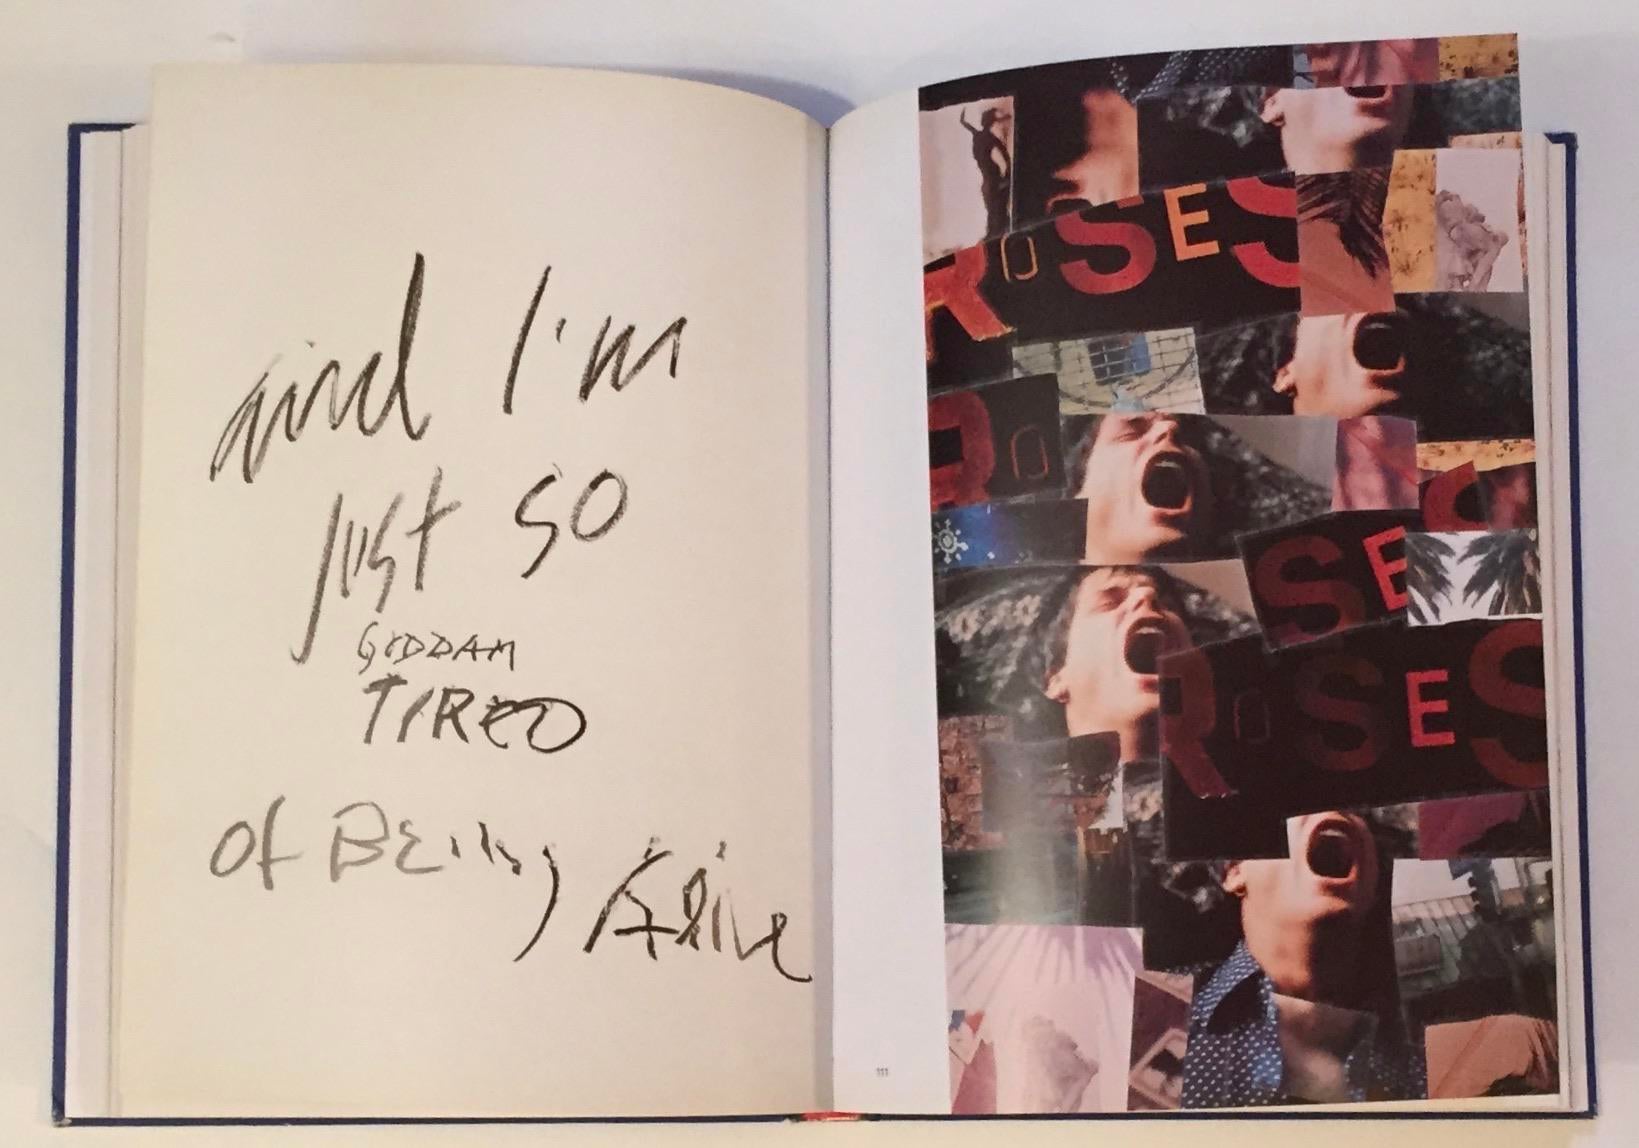 and I'm
just so
GODDAM
TIRED
of BEing
Alive
ROSES
RO
SES
ROSES
111